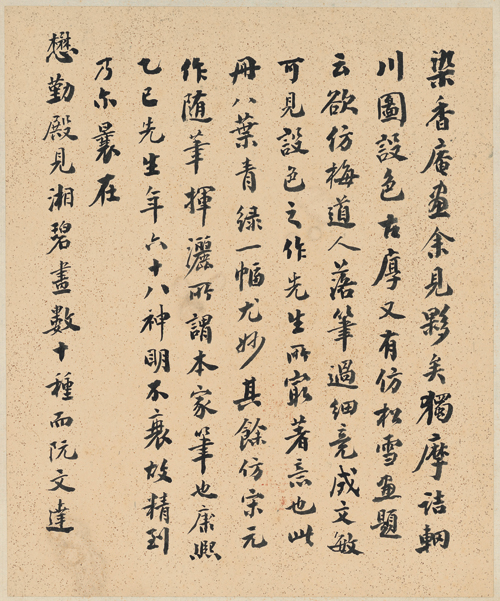 染香庵畫余見夥矣獨摩詰輞
川圖設色古厚又有仿松雪畫題
云欲仿梅道人落筆過細竟成文敏
可見設色之作先生所最著意也此
冊八葉青緑一幅尤妙其餘仿宋元
作随筆揮灑所謂本家筆也康熙
乙巳先生年六十八神明不衰故精到
乃尔曩在
懋勤殿見湘碧畫數十種而阮文達